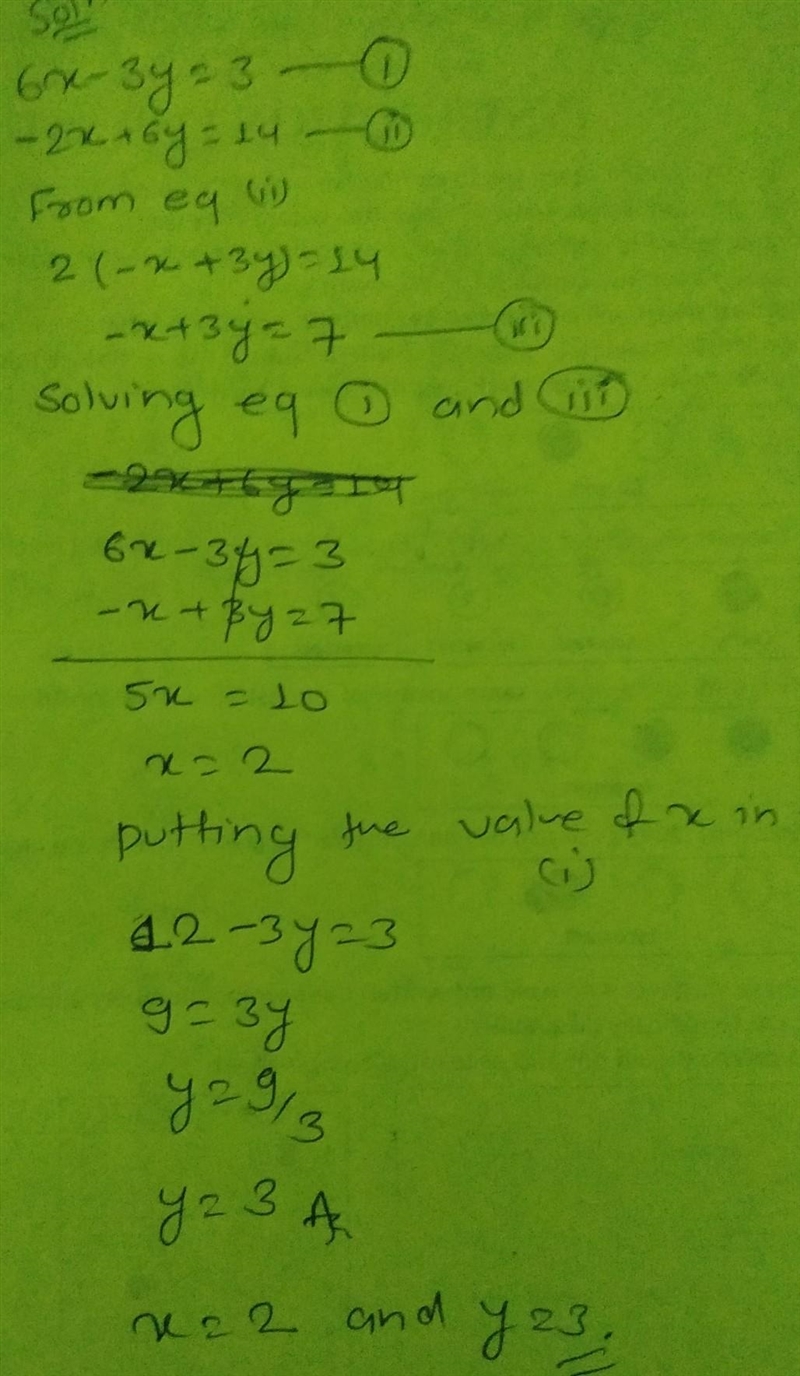 Sol
6x - 3y = 3 — (i)
-2x + 6y = 14 — (ii)
From eq (ii)
2 (-x + 3y) = 14
-x + 3y = 7 — (iii)
Solving eq (i) and (iii)
-2x + 6y = 14
6x - 3y = 3
-x + 3y = 7
5x = 10
x = 2
putting the value of x in
(i)
12 - 3y = 3
9 = 3y
y = 9/3
y = 3 A
x = 2 and y = 3.